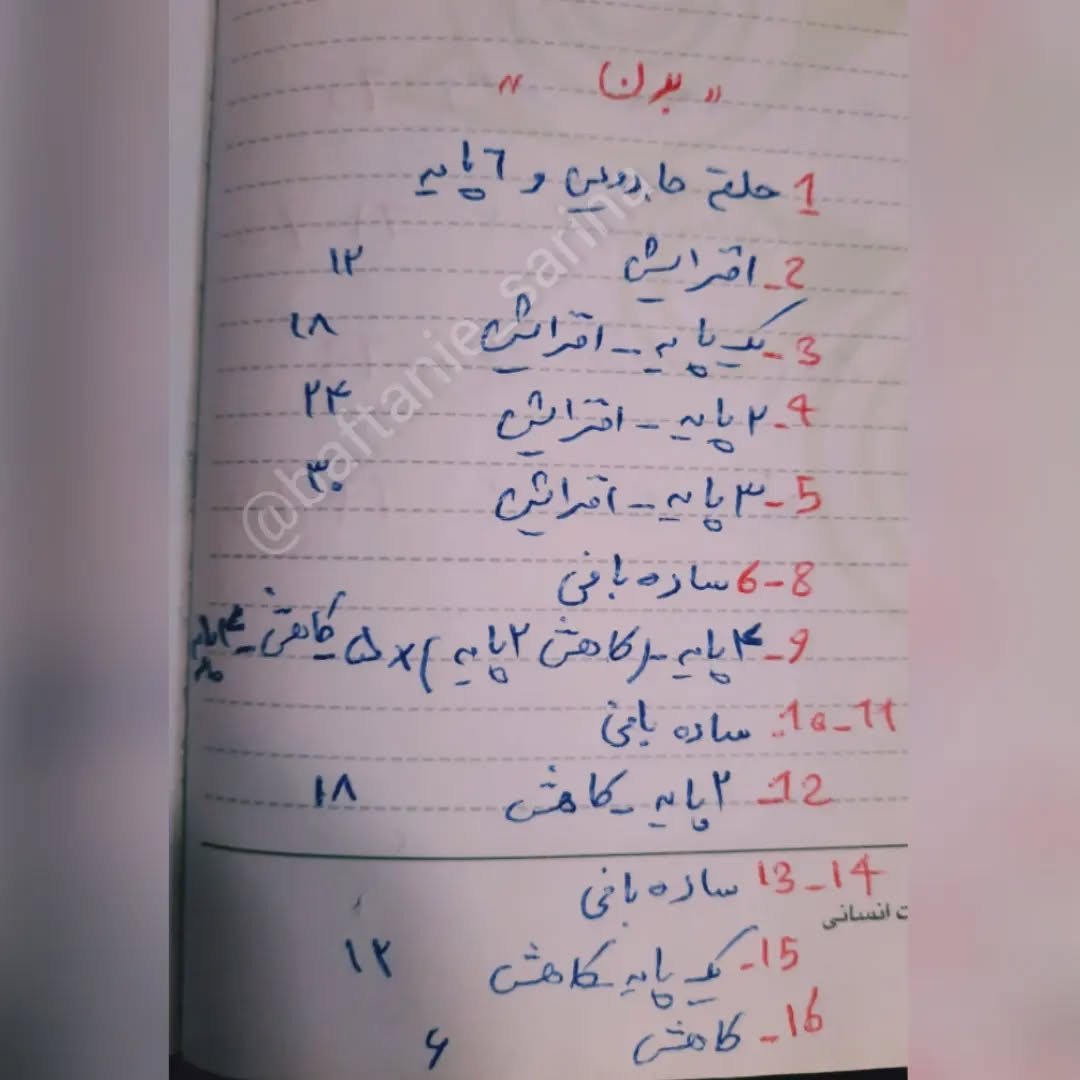 « بدن »
1 حلقه جادویی و 6 پایه
2_ افزایش ۱۲
3_ یک پایه _ افزایش ۱۸
4_ ۲ پایه _ افزایش ۲۴
5_ ۳ پایه _ افزایش ۳۰
6-8 ساده بافی
9_ ۴ پایه _ (کاهش ۲ پایه) × ۵ کاهش _ ۴ پایه
10_11_ ساده بافی
12_ ۲ پایه _ کاهش ۱۸
13_14 ساده بافی
ت انسانی
15_ یک پایه _ کاهش ۱۲
16_ کاهش ۶
@baftanie_sarina